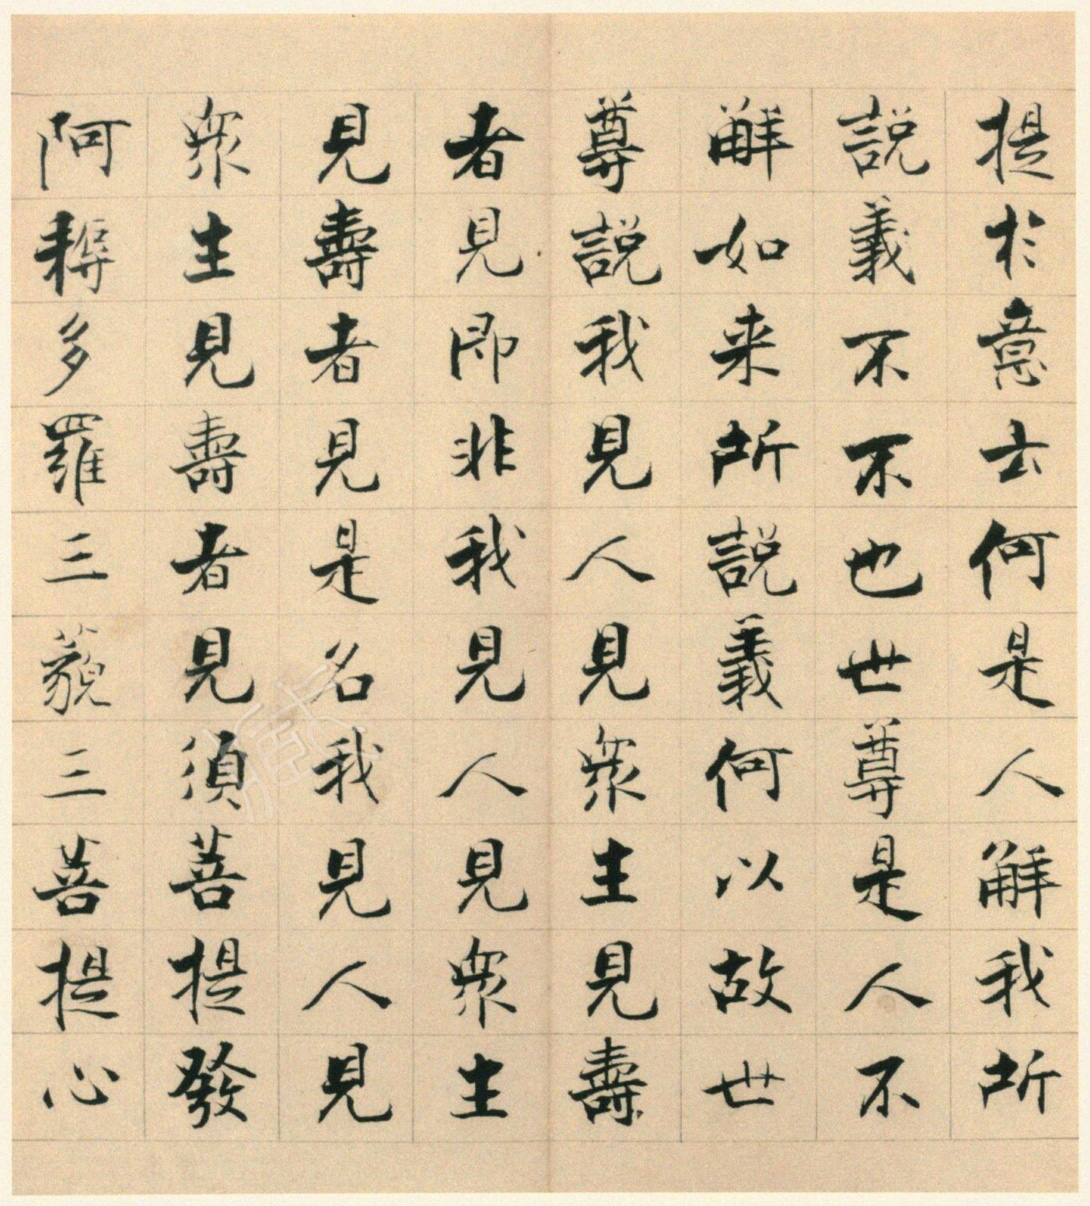 提於意云何是人解我所
說義不不也世尊是人不
解如来所說義何以故世
尊說我見人見眾生見壽
者見即非我見人見眾生
見壽者見是名我見人見
眾生見壽者見須菩提發
阿耨多羅三藐三菩提心